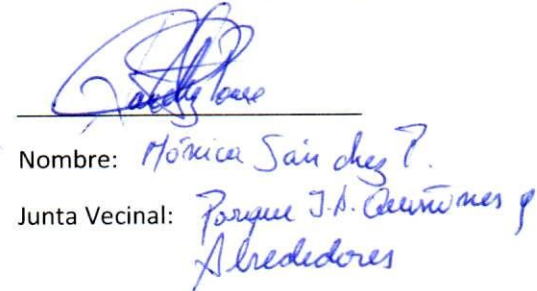 Nombre: Mónica Sánchez P.
Junta Vecinal: Parque J.A. Quiñones y
Alrededores